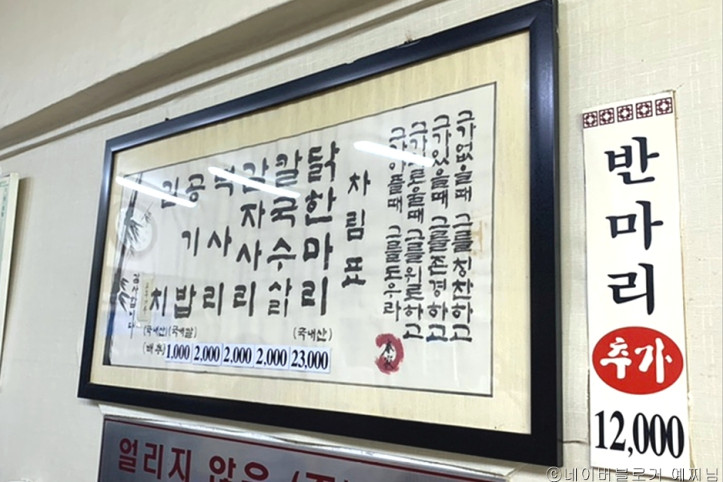 그가없을때 그를칭찬하고
그가있을때 그를존경하고
그를위로하고
그를도우라
차림표
닭한마리
칼국수
감자사리
떡사리
공기밥
김치
(국내산) (국내쌀) (국내산)
(배추) 1,000 2,000 2,000 2,000 23,000
반마리
추가
12,000
얼리지 않은
©네이버블로거 예찌님